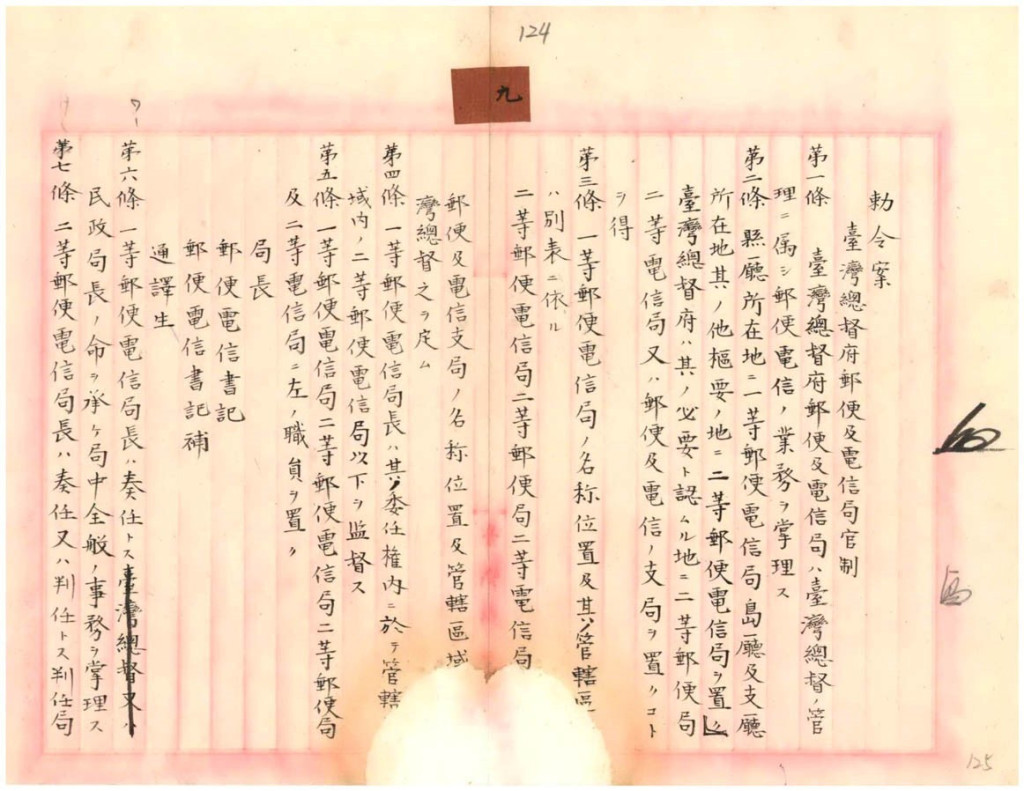 124
九
勅令案
臺灣總督府郵便及電信局官制
第一條 臺灣總督府郵便及電信局ハ臺灣總督ノ管
理ニ属シ郵便電信ノ業務ヲ掌理ス
第二條 縣廳所在地ニ一等郵便電信局島廳及支廳
所在地其ノ他樞要ノ地ニ二等郵便電信局ヲ置ク
臺灣總督府ハ其ノ必要ト認ムル地ニ二等郵便局
二等電信局又ハ郵便及電信ノ支局ヲ置クコト
ヲ得
第三條 一等郵便電信局ノ名称位置及其ノ管轄區
ハ別表ニ依ル
二等郵便電信局二等郵便局二等電信局
郵便及電信支局ノ名称位置及管轄區域
灣總督之ヲ定ム
第四條 一等郵便電信局長ハ其ノ委任權內ニ於テ管轄
域內ノ二等郵便電信局以下ヲ監督ス
第五條 一等郵便電信局二等郵便電信局二等郵便局
及二等電信局ニ左ノ職員ヲ置ク
局長
郵便電信書記
郵便電信書記補
通譯生
第六條 一等郵便電信局長ハ奏任トス臺灣總督又ハ
民政局長ノ命ヲ承ケ局中全般ノ事務ヲ掌理ス
第七條 二等郵便電信局長ハ奏任又ハ判任トス判任局
125